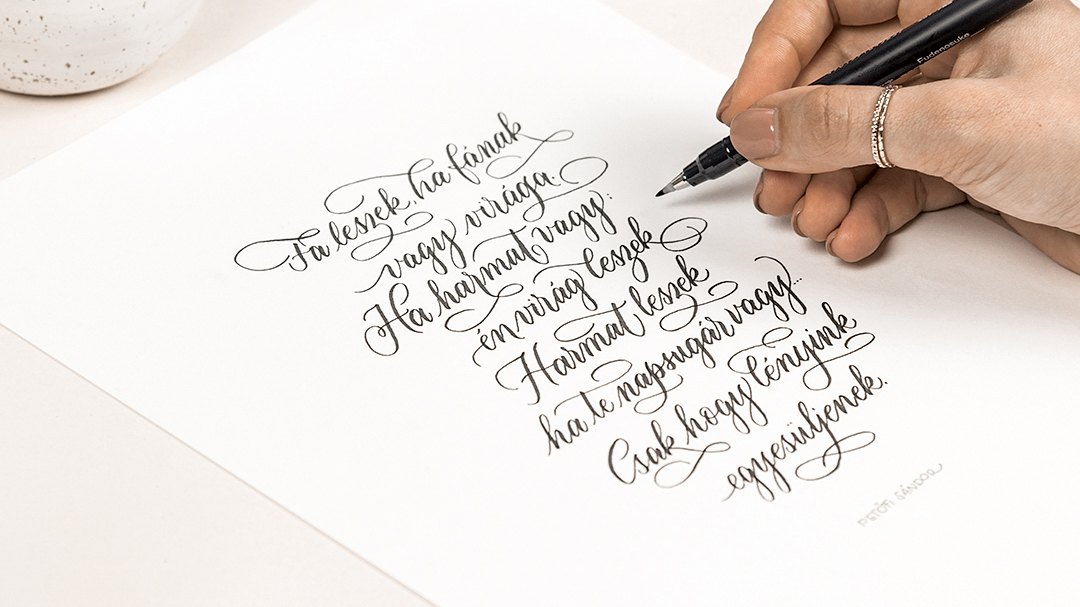 Fa leszek, ha fának
vagy virága.
Ha harmat vagy:
én virág leszek
Harmat leszek
ha te napsugár vagy...
Csak hogy lényink
egyesüljenek.
PETŐFI SÁNDOR
Fudenosuke